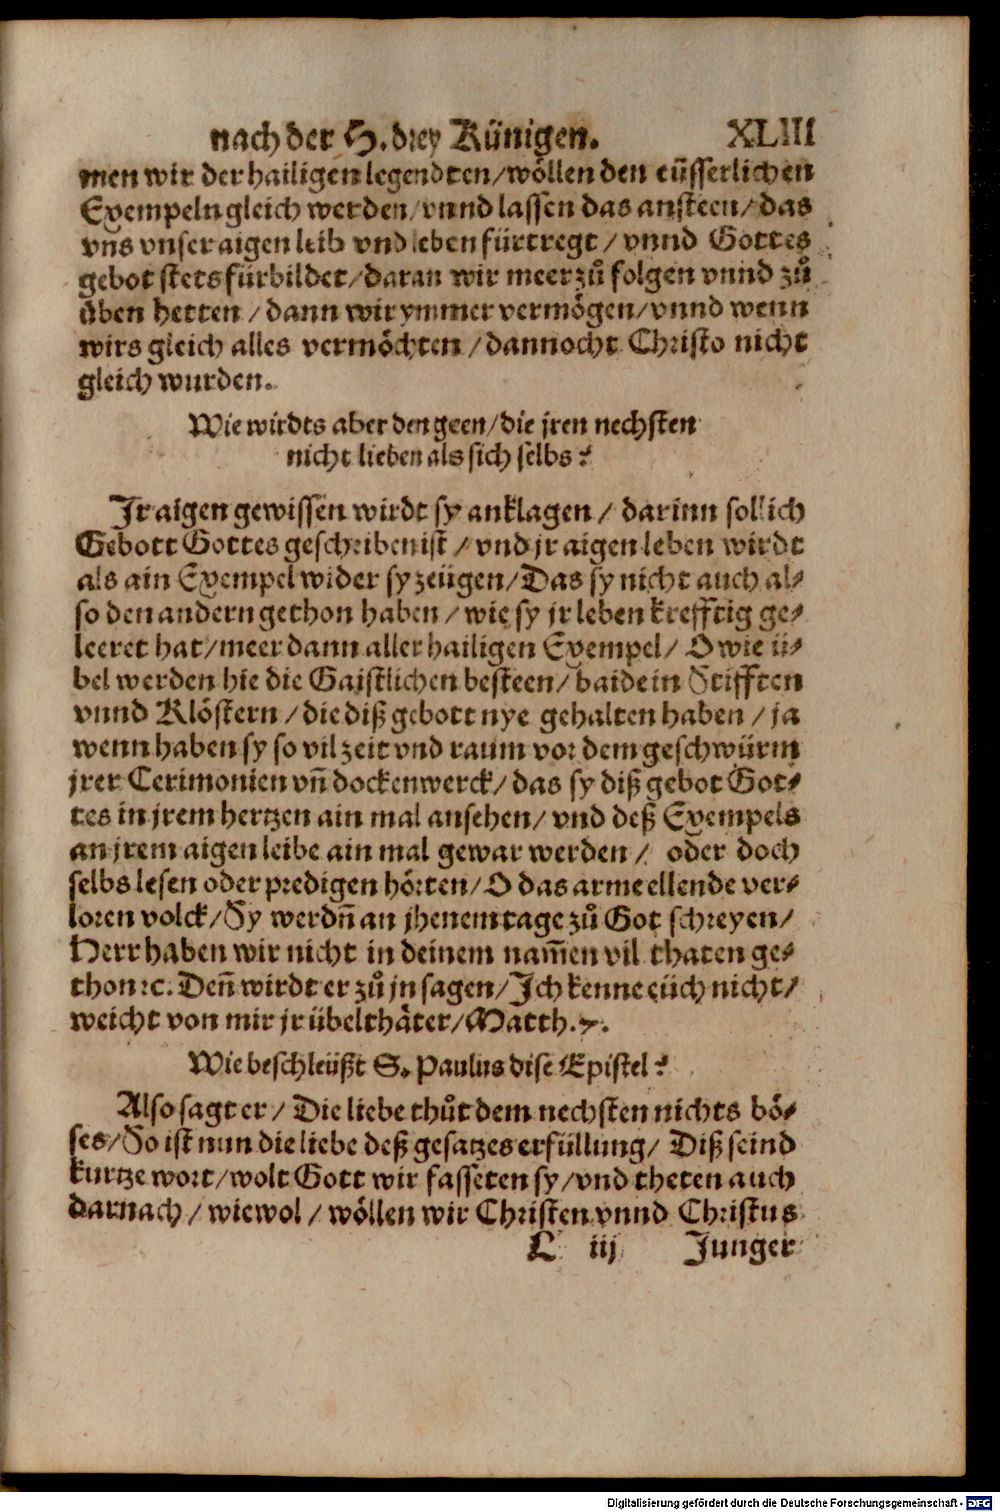 nach der H. drey Künigen. XLIII
men wir der hailigen legendten/wöllen den eüsserlichen
Exempeln gleich werden/vnnd lassen das ansteen/das
vns vnser aigen leib vnd leben fürtregt/vnnd Gottes
gebot stets fürbildet/daran wir meer zů folgen vnnd zů
üben hetten/dann wir ymmer vermögen/vnnd wenn
wirs gleich alles vermöchten/dannocht Christo nicht
gleich wurden.
Wie wirdts aber den geen/die jren nechsten
nicht lieben als sich selbs?
Jr aigen gewissen wirdt sy anklagen/darinn sollich
Gebott Gottes geschriben ist/vnd jr aigen leben wirdt
als ain Exempel wider sy zeügen/Das sy nicht auch al⸗
so den andern gethon haben/wie sy jr leben krefftig ge⸗
leeret hat/meer dann aller hailigen Exempel/O wie ü⸗
bel werden hie die Gaistlichen besteen/baide in Stifften
vnnd Klöstern/die diß gebott nye gehalten haben/ja
wenn haben sy so vil zeit vnd raum vor dem geschwürm
jrer Cerimonien vñ dockenwerck/das sy diß gebot Got⸗
tes in jrem hertzen ain mal ansehen/vnd deß Exempels
an jrem aigen leibe ain mal gewar werden/oder doch
selbs lesen oder predigen hörten/O das arme ellende ver⸗
loren volck/Sy werdñ an jhenem tage zů Got schreyen/
Herr haben wir nicht in deinem nam̃en vil thaten ge⸗
thon ꝛc. Deñ wirdt er zů jn sagen/Jch kenne eüch nicht/
weicht von mir jr übelthäter/Matth.7.
Wie beschleüßt S. Paulus dise Epistel?
Also sagt er/Die liebe thůt dem nechsten nichts bö⸗
ses/So ist nun die liebe deß gesatzes erfüllung/Diß seind
kurtze wort/wolt Gott wir fasseten sy/vnd theten auch
darnach/wiewol/wöllen wir Christen vnnd Christus
L iij Junger
Digitalisierung gefördert durch die Deutsche Forschungsgemeinschaft - DFG